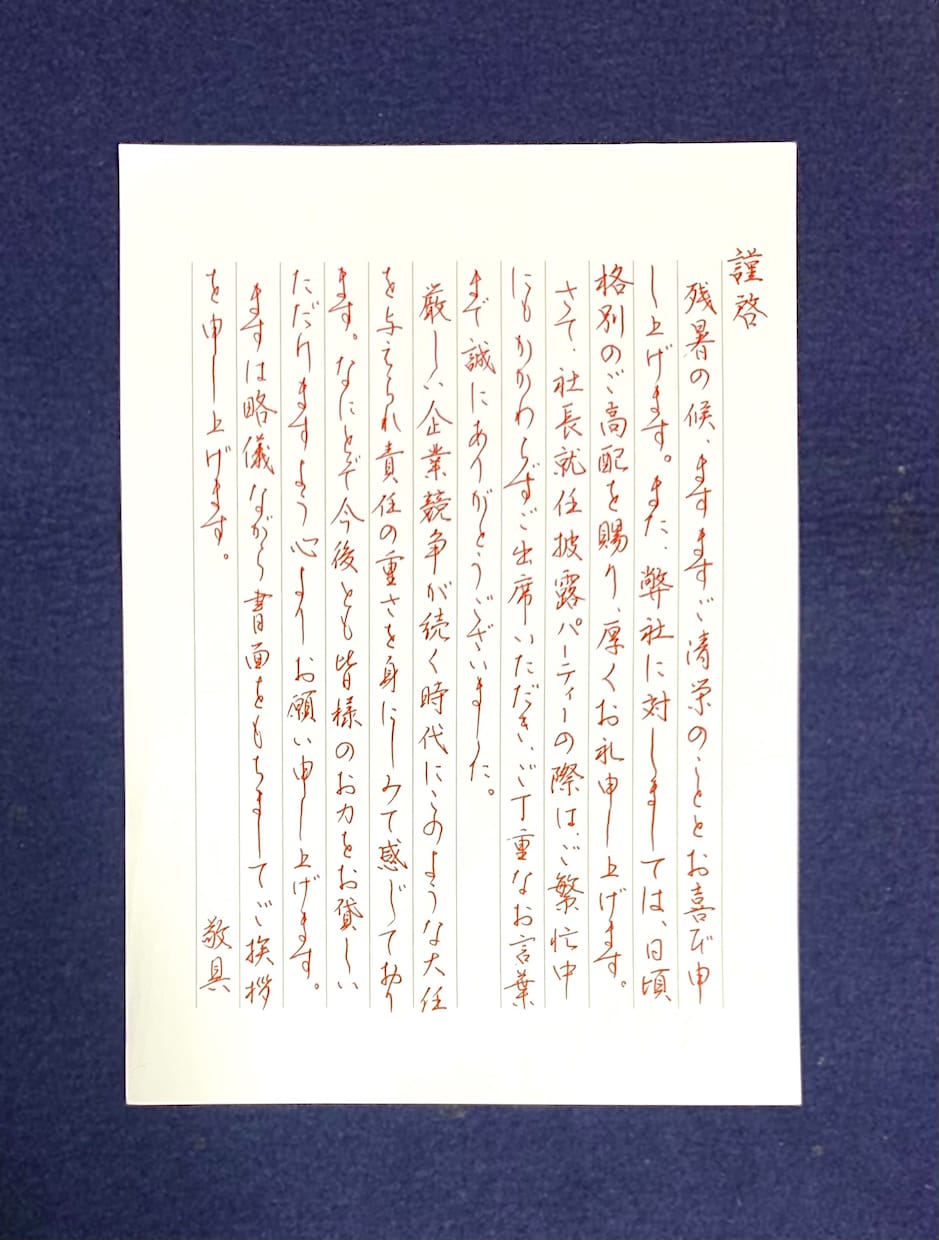 謹啓
残暑の候、ますますご清栄のこととお喜び申
し上げます。また、弊社に対しましては、日頃
格別のご高配を賜り、厚くお礼申し上げます。
さて、社長就任披露パーティーの際は、ご繁忙中
にもかかわらずご出席いただき、ご丁重なお言葉
まで誠にありがとうございました。
厳しい企業競争が続く時代にこのような大任
を与えられ責任の重さを身にしみて感じており
ます。なにとぞ今後とも皆様のお力をお貸しい
ただけますよう心よりお願い申し上げます。
まずは略儀ながら書面をもちましてご挨拶
を申し上げます。
敬具